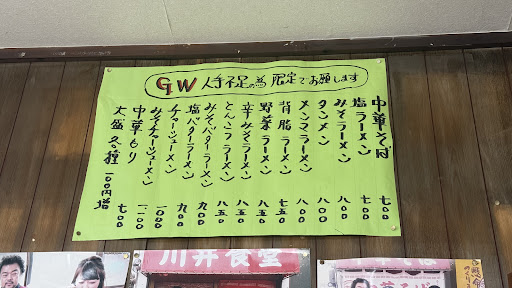 GW 人手不足の為 限定でお願します
中華そば 七〇〇
塩ラーメン 七〇〇
みそラーメン 八〇〇
タンメン 八〇〇
メンマラーメン 八〇〇
背脂ラーメン 七五〇
野菜ラーメン 八五〇
辛みそラーメン 八五〇
とんこつラーメン 八五〇
みそバターラーメン 九〇〇
塩バターラーメン 九〇〇
チャーシューメン 一〇〇〇
みそチャーシューメン
中華もり 七〇〇
大盛各種 一〇〇円増
川井食堂